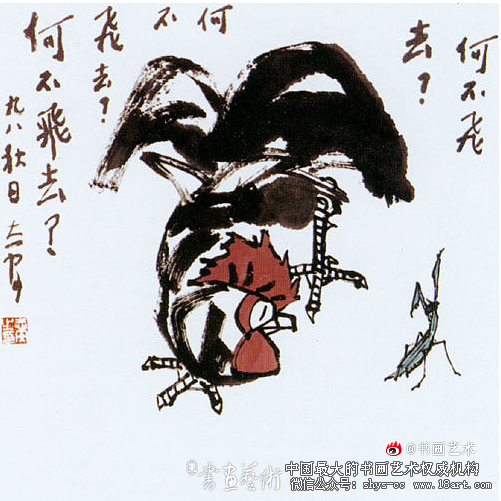 何不飞
去？
何
不
飛去？
何不飛去？
九八秋日
書畫藝術
@书画艺术
中国最大的书画艺术权威机构
微信公众号: shys-cc www.18art.com